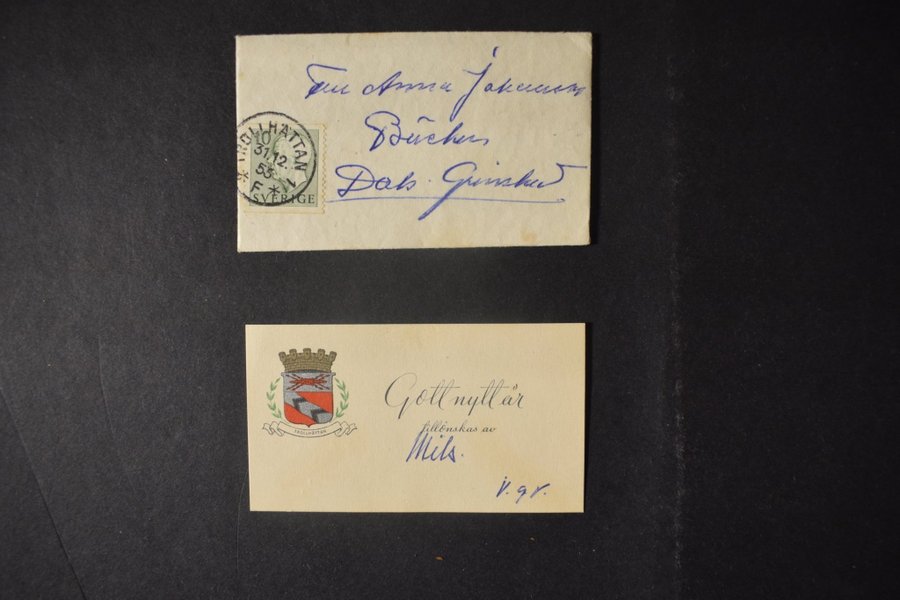 Fru Anna Johansson
Bäcken
Dals-Grinstad
TROLLHÄTTAN 1
10
31.12.
53
F
SVERIGE
Gott nytt år
tillönskas av
TROLLHÄTTAN
Nils.